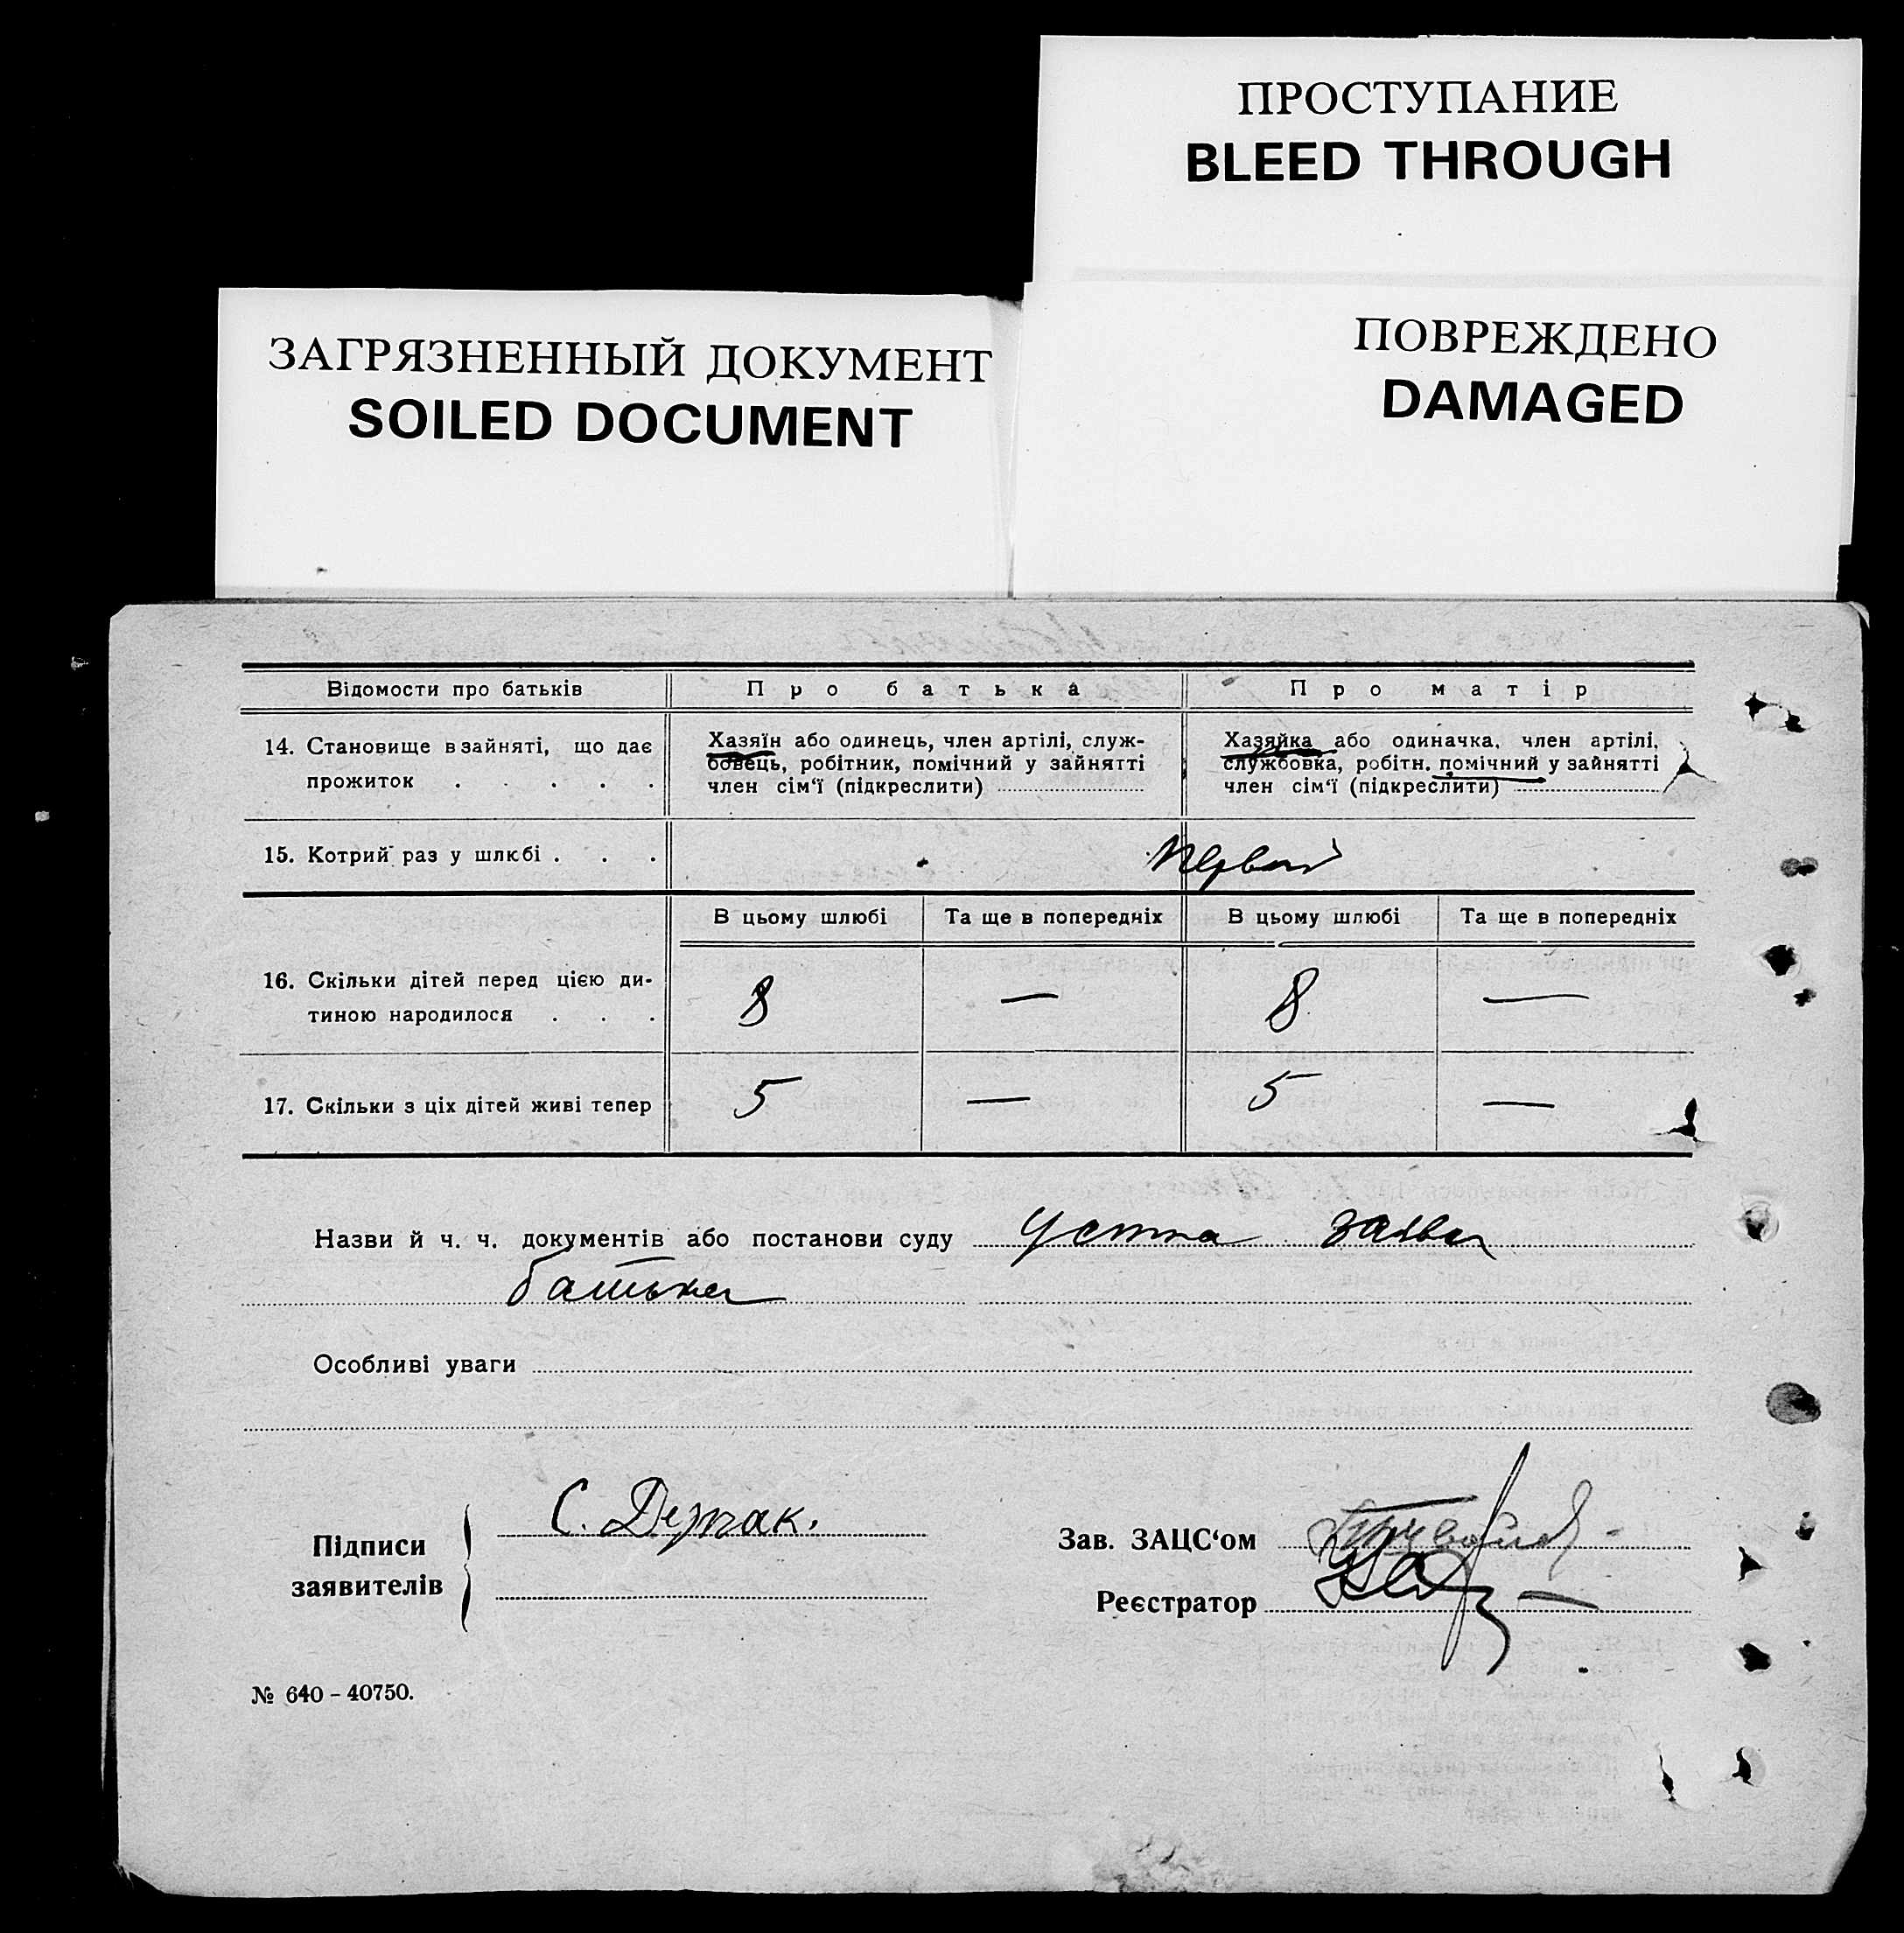 ПРОСТУПАНИЕ
BLEED THROUGH
ПОВРЕЖДЕНО
DAMAGED
ЗАГРЯЗНЕННЫЙ ДОКУМЕНТ
SOILED DOCUMENT
Відомости про батьків Про батька Про матір
14. Становище в зайняті, що дає
прожиток . . . . .
Хазяїн або одинець, член артілі, служ-
бовець, робітник, помічний у зайнятті
член сім‘ї (підкреслити)
Хазяйка або одиначка, член артілі,
службовка, робітн. помічний у зайнятті
член сім‘ї (підкреслити)
15. Котрий раз у шлюбі . . .
В цьому шлюбі Та ще в попередніх В цьому шлюбі Та ще в попередніх
16. Скільки дітей перед цією ди-
тиною народилося . . .
8 — 8 —
17. Скільки з ціх дітей живі тепер 5 — 5 —
Назви й ч. ч. документів або постанови суду Устна заява
батька
Особливі уваги
Підписи
заявителів
С.
Зав. ЗАЦС‘ом
Реєстратор
№ 640 – 40750.